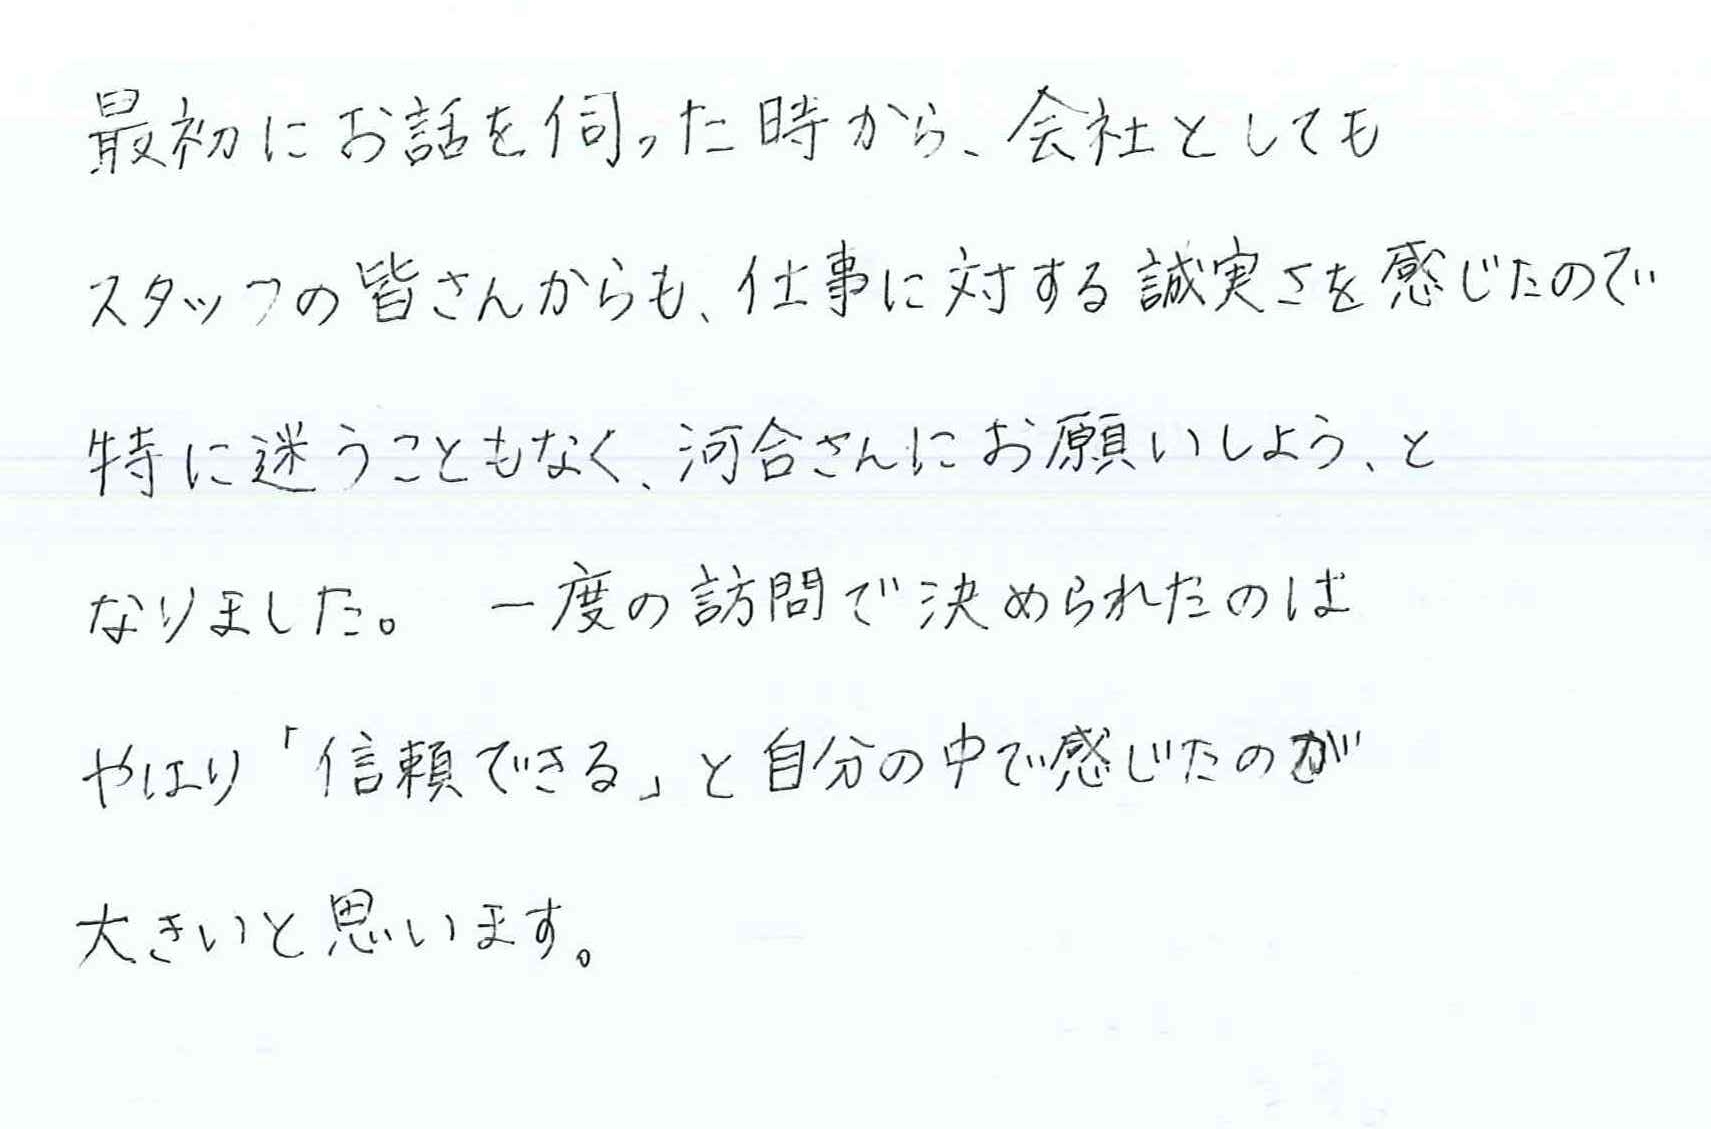 最初にお話を伺った時から、会社としても
スタッフの皆さんからも、仕事に対する誠実さを感じたので
特に迷うこともなく、河合さんにお願いしよう、と
なりました。 一度の訪問で決められたのは
やはり「信頼できる」と自分の中で感じたのが
大きいと思います。